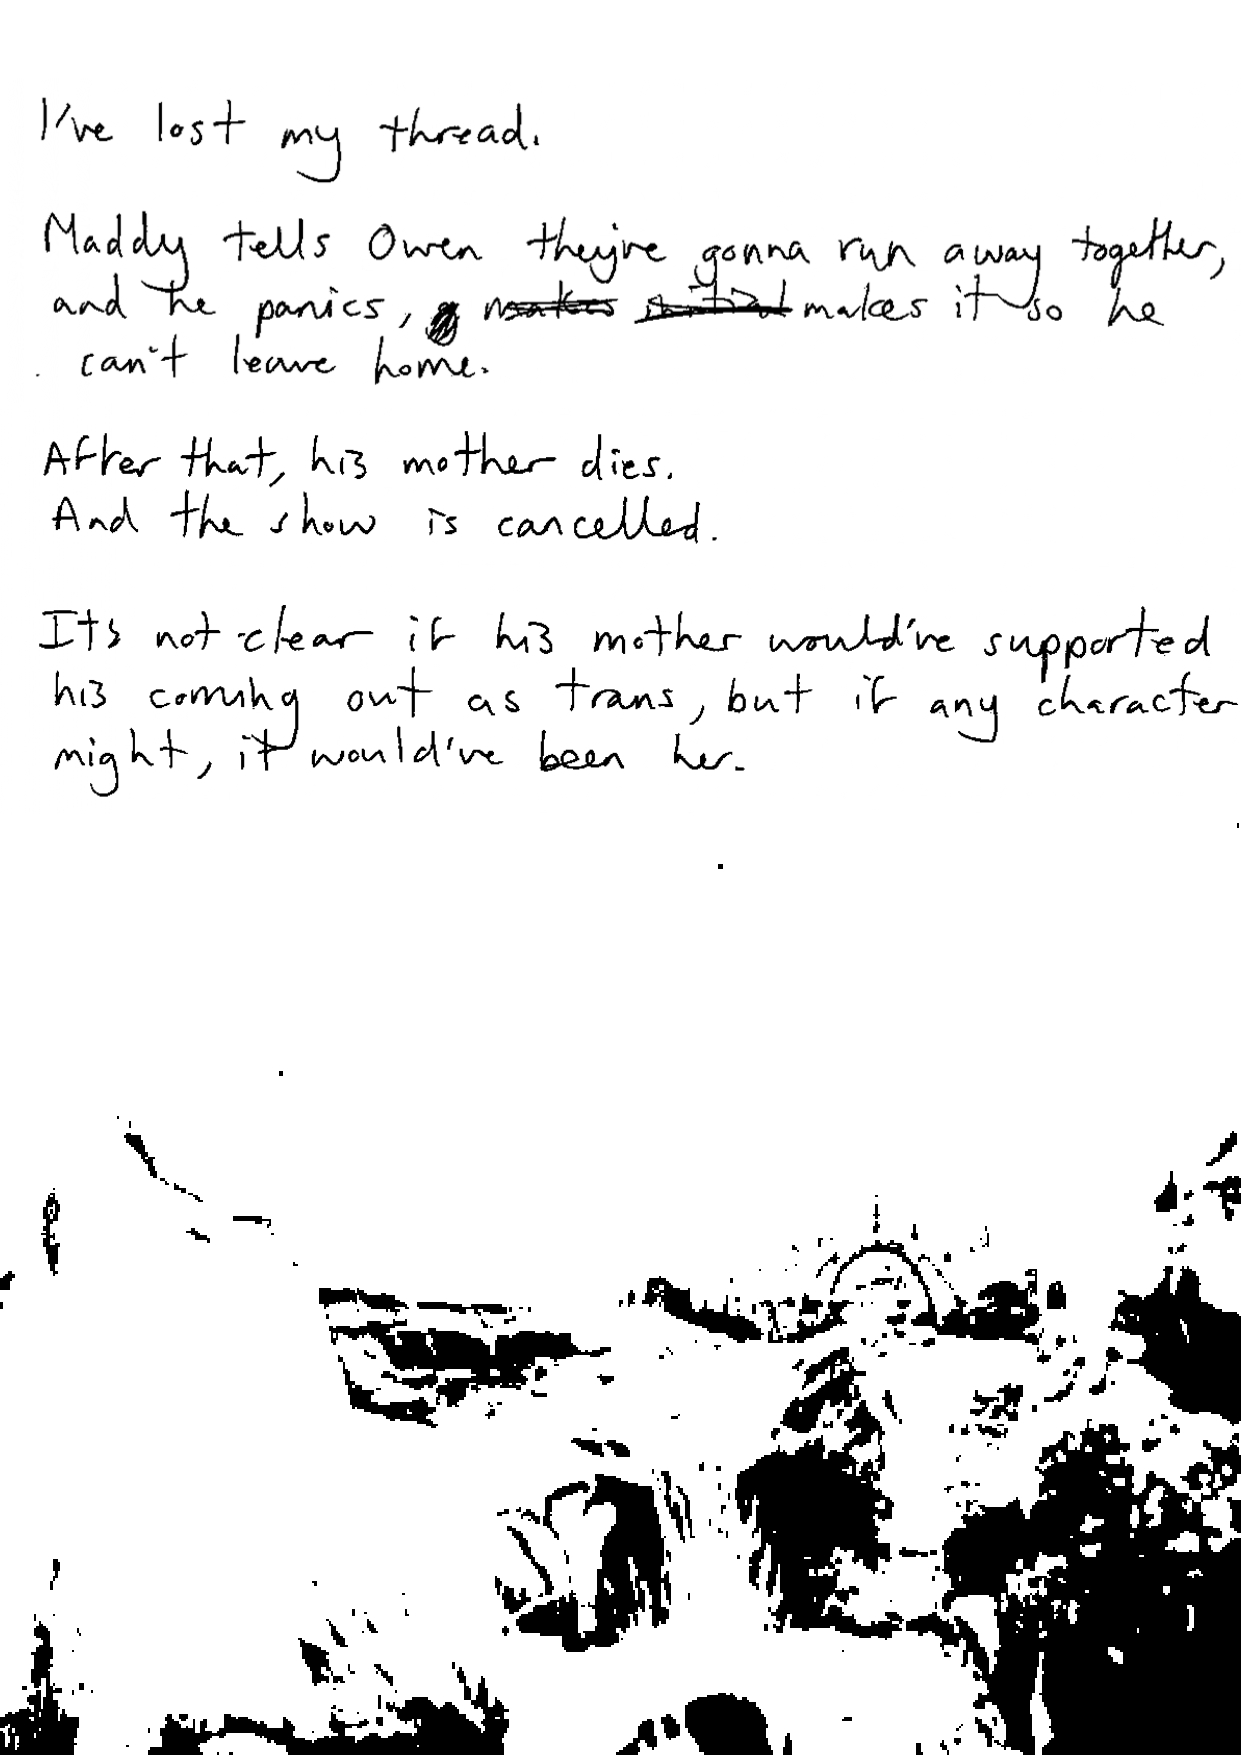 I've lost my thread.
Maddy tells Owen they're gonna run away together,
and he panics, makes makes it so he
can't leave home.
After that, his mother dies.
And the show is cancelled.
Its not clear if his mother would've supported
his coming out as trans, but if any character
might, it would've been her.